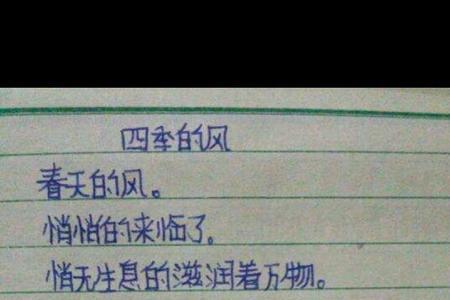 四季的风
春天的风。
悄悄的来临了。
悄无生息的滋润着万物。